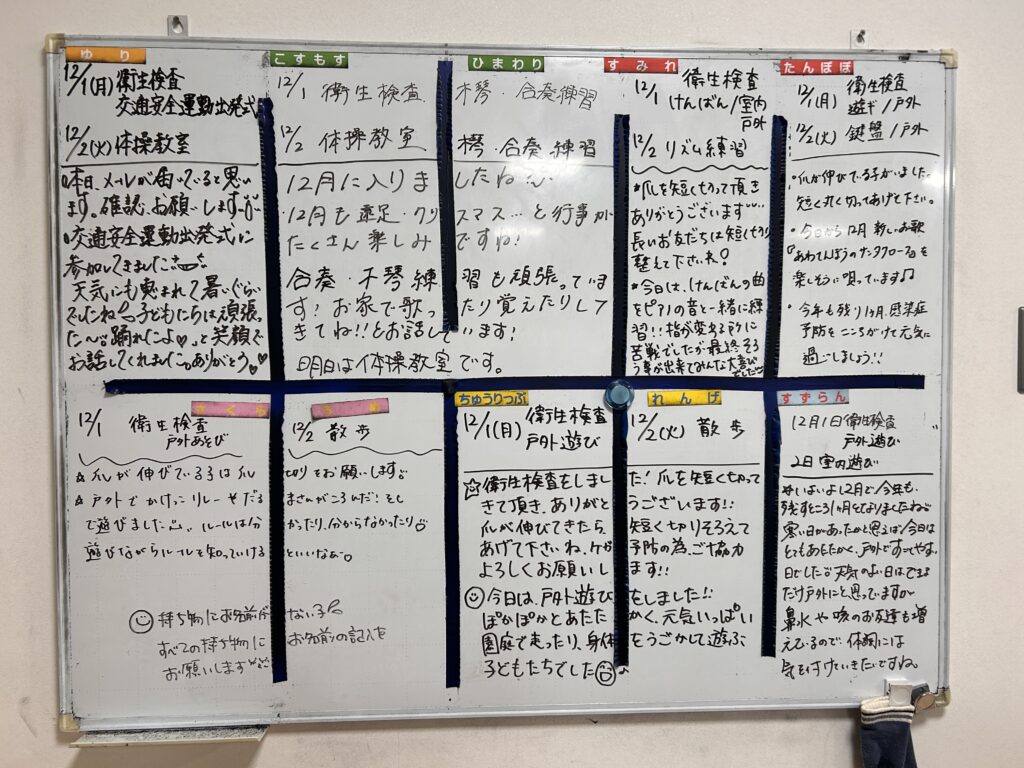 ゆり
12/1(月) 衛生検査
交通安全運動出発式
12/2(火) 体操教室
本日、メールが届いていると思い
ます。確認、お願いします
交通安全運動出発式に
参加してきました
天気にも恵まれて暑いぐらい
でしたね 子どもたちは頑張っ
た〜 踊れたよ♡。と笑顔で
お話してくれました。ありがとう♡
こすもす
ひまわり
12/1 衛生検査 木琴・合奏練習
12/2 体操教室 木琴・合奏練習
12月に入りましたね
12月も遠足・クリスマス…と行事が
たくさん楽しみですね!
合奏・木琴練習も頑張っていま
す! お家で歌ったり覚えたりして
きてね!!とお話しています!
明日は体操教室です。
すみれ
12/1 衛生検査
けんばん/室内
戸外
12/2 リズム練習
*爪を短く切って頂き
ありがとうございます
長いお友だちは短く切り
整えて下さいね!
*今日は、けんばんの曲
をピアノの音と一緒に練
習!!指が変わる所に
苦戦でしたが最終そろ
う事が出来てみんな大喜び
でした
たんぽぽ
12/1(月) 衛生検査
遊ぎ/戸外
12/2(火) 鍵盤/戸外
・爪が伸びている子がいました。
短く丸く切ってあげて下さい。
・今日から12月 新しいお歌
『あわてんぼうのサンタクロース』を
楽しそうに唄っています♪
・今年も残り1ヶ月、感染症
予防をこころがけて元気に
過ごしましょう!!
さくら
うめ
12/1 衛生検査 12/2 散歩
戸外あそび
☆爪が伸びている子は爪切りをお願いします。
☆戸外でかけっこリレーやだるまさんがころんだ!をし
て遊びました。ルールは分かったり、分からなかったり
遊びながらルールを知っていけるといいなぁ。
☺持ち物にお名前がない子も
すべての持ち物にお名前の記入を
お願いします
ちゅうりっぷ
れんげ
12/1(月) 衛生検査 12/2(火) 散歩
戸外遊び
☆衛生検査をしました!爪を短く切って
きて頂き、ありがとうございます!!
爪が伸びてきたら短く切りそろえて
あげて下さいね。ケガ予防の為、ご協力
よろしくお願いします!!
☺今日は、戸外遊びをしました!!
ぽかぽかとあたたかく、元気いっぱい
園庭で走ったり、身体をうごかして遊ぶ
子どもたちでした☺♪
すずらん
12月1日 衛生検査
戸外遊び
2日 室内遊び
*いよいよ12月で今年も、
残すところ1ヶ月となりましたね
寒い日があったかと思えば今日は
とてもあたたかく、戸外ですごしやすい
日でした 天気のよい日はできる
だけ戸外にと思っていますが
鼻水や咳のお友達も増
えているので、体調には
気を付けていきたいですね。